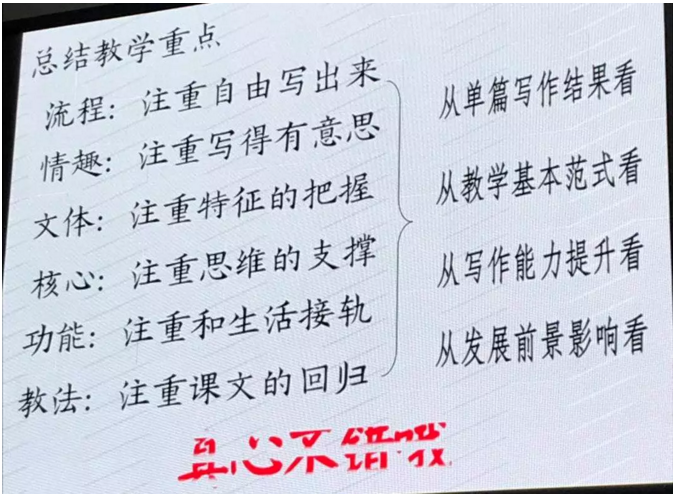 总结教学重点
流程：注重自由写出来
情趣：注重写得有意思
文体：注重特征的把握
核心：注重思维的支撑
功能：注重和生活接轨
教法：注重课文的回归
从单篇写作结果看
从教学基本范式看
从写作能力提升看
从发展前景影响看
真心不错哦